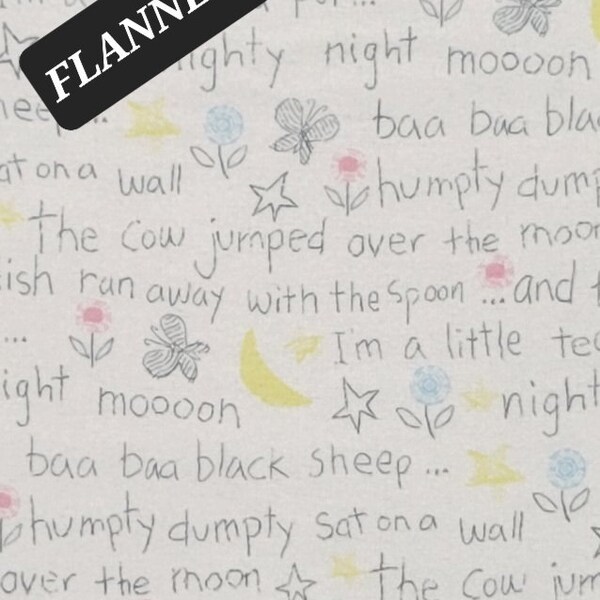 FLANNE
ighty night moooon
baa baa blac
at on a wall humpty dump
The Cow jumped over the moon
ish ran away with the spoon ...and t
... I'm a little tea
ight moooon night
baa baa black sheep...
humpty dumpty sat on a wall
over the moon The Cow jum